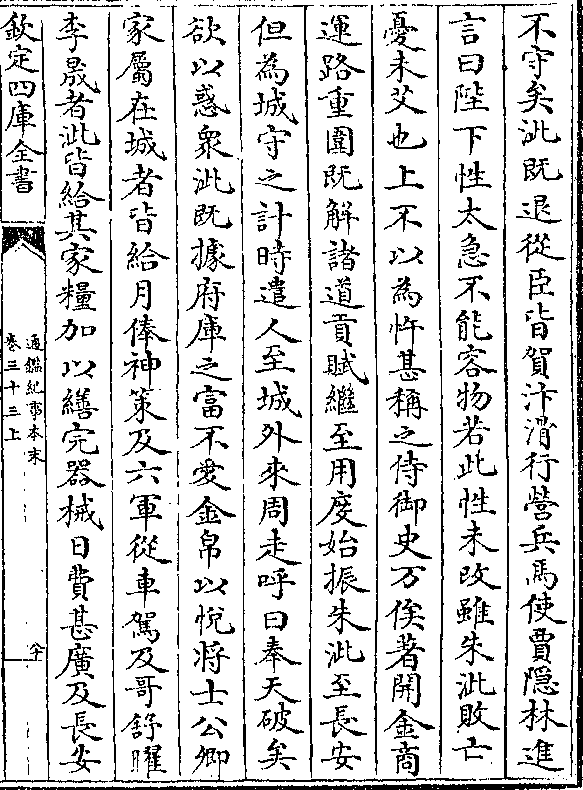 不守矣泚既退從臣皆賀汴滑行營兵馬使賈隠林進
言曰陛下性太急不能容物若此性未改雖朱泚敗亡
憂未艾也上不以為忤甚稱之侍御史万俟著開金商
運路重圍既解諸道貢賦繼至用度始振朱泚至長安
但為城守之計時遣人至城外來周走呼曰奉天破矣
欲以惑衆泚既據府庫之富不愛金帛以悅將士公卿
家屬在城者皆給月俸神策及六軍從車駕及哥舒曜
李晟者泚皆給其家糧加以繕完器械日費甚廣及長安
欽定四庫全書
通鑑紀事本末
卷三十三上